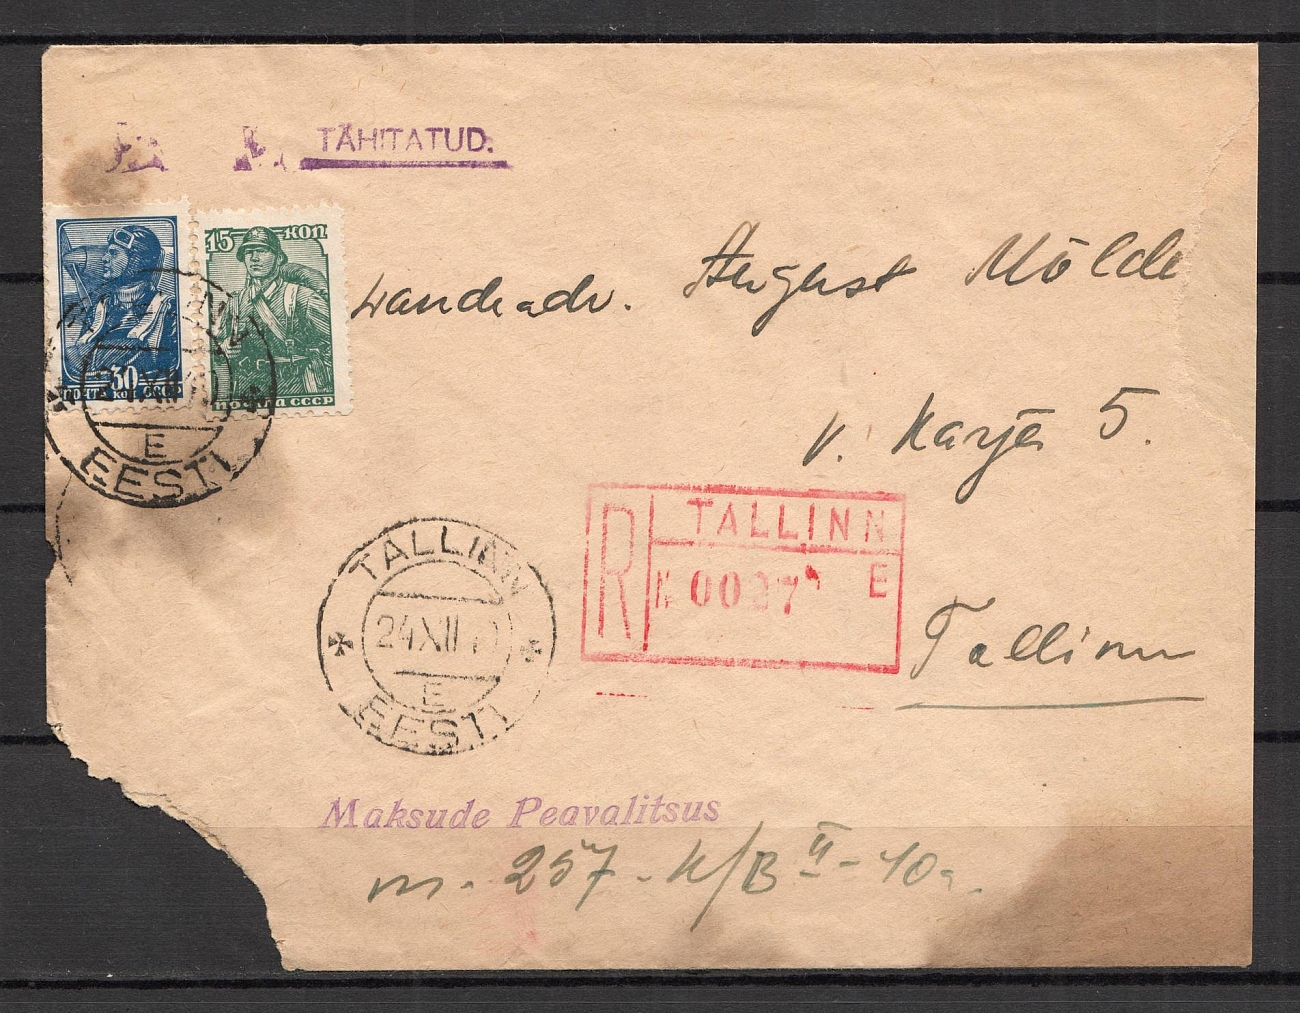 TÄHITATUD.
15 КОП
30
ПОЧТА КОП СССР
ПОЧТА СССР
E
EESTI
vandeadv. August Mölder
V. Karja 5.
R TALLINN
N 0027 E
TALLINN
24 XII
E
EESTI
Tallinn
Maksude Peavalitsus
m. 257 - K/B II - 40a.